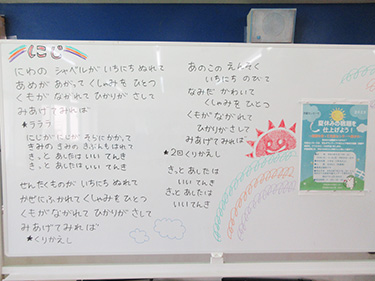 にじ
にわの シャベルが いちにち ぬれて
あめが あがって くしゃみを ひとつ
くもが ながれて ひかりが さして
みあげてみれば
★ラララ
にじが にじが そらに かかって
きみの きみの きぶんも はれて
きっと あしたは いい てんき
きっと あしたは いい てんき
せんたくものが いちにち ぬれて
かぜに ふかれて くしゃみを ひとつ
くもが ながれて ひかりが さして
みあげて みれば
★くりかえし
あのこの えんそく
いちにち のびて
なみだ かわいて
くしゃみを ひとつ
くもが ながれて
ひかりが さして
みあげて みれば
★2回くりかえし
きっと あしたは
いい てんき
きっと あしたは
いい てんき
夏休みの宿題を
仕上げよう!